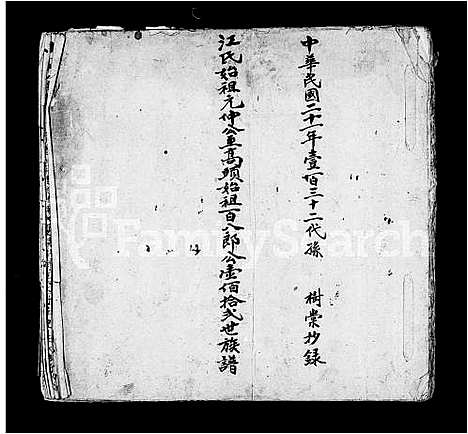 中華民國二十一年壹佰三十二代孫 樹棠抄錄
江氏始祖元仲公至高頭始祖百八郎公壹佰拾弍世族譜
FamilySearch